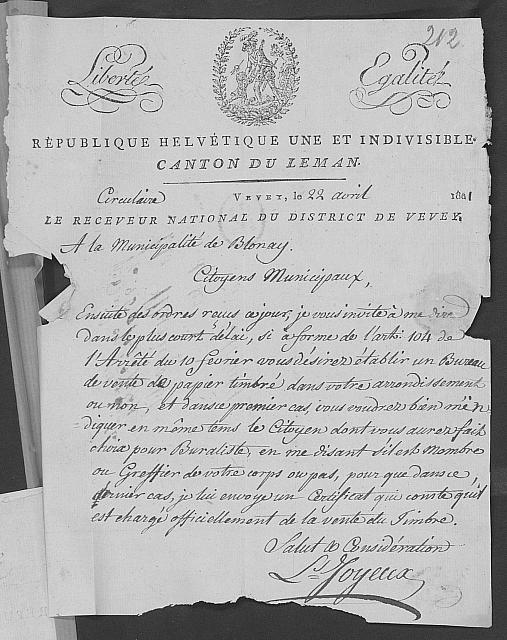 212.
Liberté Egalité
RÉPUBLIQUE HELVÉTIQUE UNE ET INDIVISIBLE.
CANTON DU LEMAN.
Circulaire VEVEY, le 22 avril 1801
LE RECEVEUR NATIONAL DU DISTRICT DE VEVEY.
A la Municipalité de Blonay.
Citoyens Municipaux,
Ensuite des ordres reçus ce jour, je vous invite à me dire
dans le plus court délai, si à forme de l'art: 104 de
l'Arrêté du 10 février vous désirez établir un Bureau
de vente de papier timbré dans votre arrondissement
ou non, et dans ce premier cas, vous voudrez bien m'en
diquer en même tems le Citoyen dont vous aurez fait
choix pour Buraliste, en me disant s'il est Membre
ou Greffier de votre corps ou pas, pour que dans ce
dernier cas, je lui envoye un Certificat qui conste qu'il
est chargé officiellement de la vente du Timbre.
Salut & Considération
Ls. Joyeux